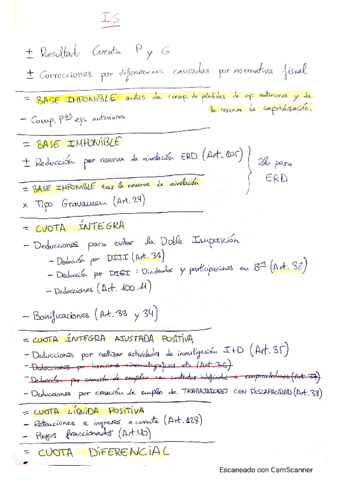 IS
± Resultado Cuenta P y G
± Correcciones por diferencias causadas por normativa fiscal
= BASE IMPONIBLE antes de comp. de pérdidas de ejs anteriores y de la reserva de capitalización.
- Comp. Pªs ejs anteriores
= BASE IMPONIBLE
± Reducción por reserva de nivelación ERD (Art. 105) Sólo para ERD
= BASE IMPONIBLE tras la reserva de nivelación
x Tipo Gravamen (Art. 29)
= CUOTA ÍNTEGRA
- Deducciones para evitar la Doble Imposición
- Deducción por DIJI (Art. 31)
- Deducción por DIEI: Dividendos y participaciones en Bº (Art. 32)
- Deducciones (Art. 100.11)
- Bonificaciones (Art. 33 y 34)
= CUOTA ÍNTEGRA AJUSTADA POSITIVA
- Deducciones por realizar actividades de investigación I+D (Art. 35)
- Deducciones por inversiones cinematográficas etc (Art. 36)
- Deducción por creación de empleo con contratos indefinidos a emprendedores (Art. 37)
- Deducciones por creación de empleo de TRABAJADORES CON DISCAPACIDAD (Art. 38)
= CUOTA LÍQUIDA POSITIVA
- Retenciones e ingresos a cuenta (Art. 128)
- Pagos fraccionados (Art. 40)
= CUOTA DIFERENCIAL
Escaneado con CamScanner